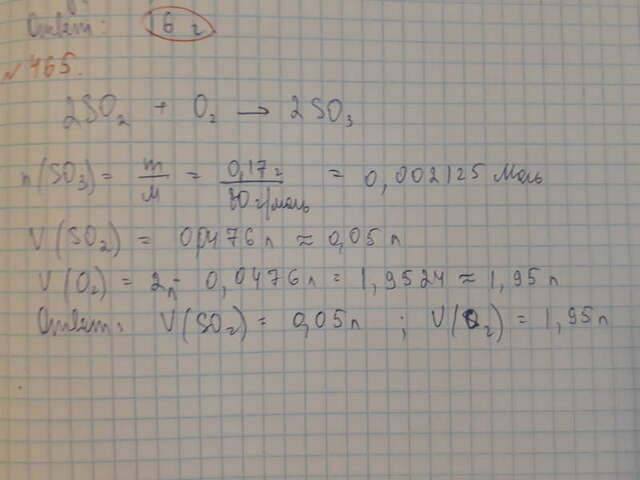 Ответ: 16 г
№ 465.
2SO₂ + O₂ → 2SO₃
n(SO₃) = m/M = 0,17г/80г/моль = 0,002125 моль
V(SO₂) = 0,0476л ≈ 0,05л
V(O₂) = 2л - 0,0476л = 1,9524 ≈ 1,95л
Ответ: V(SO₂) = 0,05л ; V(O₂) = 1,95л